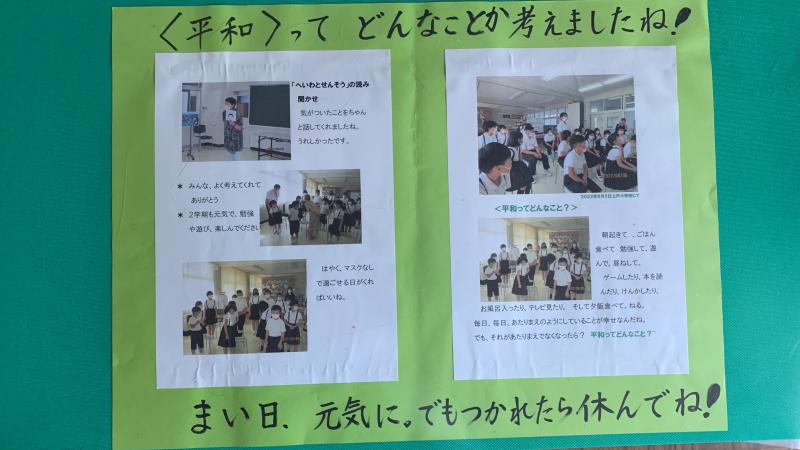 〈平和〉って どんなことか考えましたね!
「へいわとせんそう」の読み
聞かせ
気がついたことをちゃん
と話してくれましたね。
うれしかったです。
＊ みんな、よく考えてくれて
ありがとう
＊ 2学期も元気で、勉強
や遊び、楽しんでください
はやく、マスクなし
で過ごせる日がくれ
ばいいね。
＜平和ってどんなこと？＞
朝起きて 、ごはん
食べて 勉強して、遊
んで、昼ねして。
ゲームしたり、本を読
んだり、けんかしたり、
お風呂入ったり、テレビ見たり、 そして夕飯食べて、ねる。
毎日、毎日、あたりまえのようにしていることが幸せなんだね。
でも、それがあたりまえでなくなったら？ 平和ってどんなこと？
まい日、元気に。でもつかれたら休んでね!